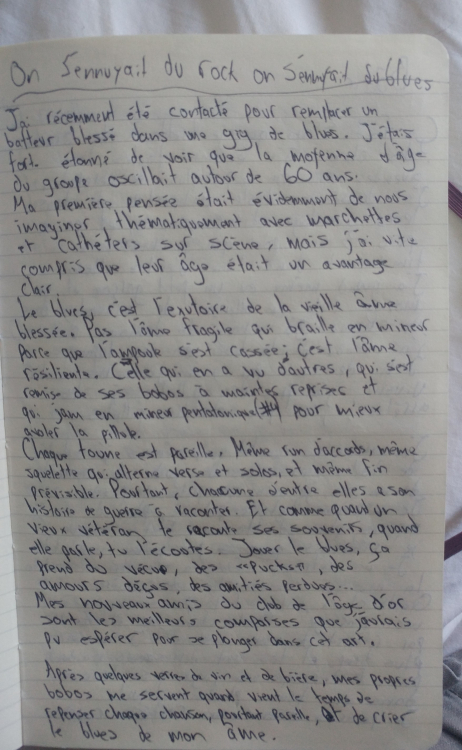 On s'ennuyait du rock on s'ennuyait du blues
J'ai récemment été contacté pour remplacer un
batteur blessé dans une gig de blues. J'étais
fort étonné de voir que la moyenne d'âge
du groupe oscillait autour de 60 ans.
Ma première pensée était évidemment de nous
imaginer thématiquement avec marchettes
et cathéters sur scène, mais j'ai vite
compris que leur âge était un avantage
clair.
Le blues, c'est l'exutoire de la vieille âme
blessée. Pas l'âme fragile qui braille en mineur
parce que l'ampoule s'est cassée; c'est l'âme
résiliente. Celle qui en a vu d'autres, qui s'est
remise de ses bobos à maintes reprises et
qui jam en mineur pentatonique(#4) pour mieux
avaler la pillule.
Chaque toune est pareille. Même run d'accords, même
squelette qui alterne verse et solos, et même fin
prévisible. Pourtant, chacune d'entre elles a son
histoire de guerre à raconter. Et comme quand un
vieux vétéran te raconte ses souvenirs, quand
elle parle, tu l'écoutes. Jouer le blues, ça
prend du vécu, des «pucks», des
amours déçus, des amitiés perdues...
Mes nouveaux amis du club de l'âge d'or
sont les meilleurs comparses que j'aurais
pu espérer pour me plonger dans cet art.
Après quelques verres de vin et de bière, mes propres
bobos me servent quand vient le temps de
repenser chaque chanson, pourtant pareille, et de crier
le blues de mon âme.